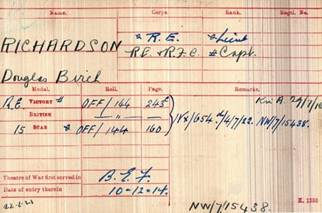 Name. Corps. Rank. Regtl. No.
RICHARDSON * R.E. * Lieut
R.E. & R.F.C. # Capt.
Douglas Birch
Medal. Roll. Page. Remarks.
R.E. VICTORY # OFF/164 245 K in A. 24/7/16
BRITISH — " — "
15 STAR * OFF/144 160. NW/7/15438.
Theatre of War first served in B.E.F
Date of entry therein 10-12-14.
NW/7/15438.
K. 1380